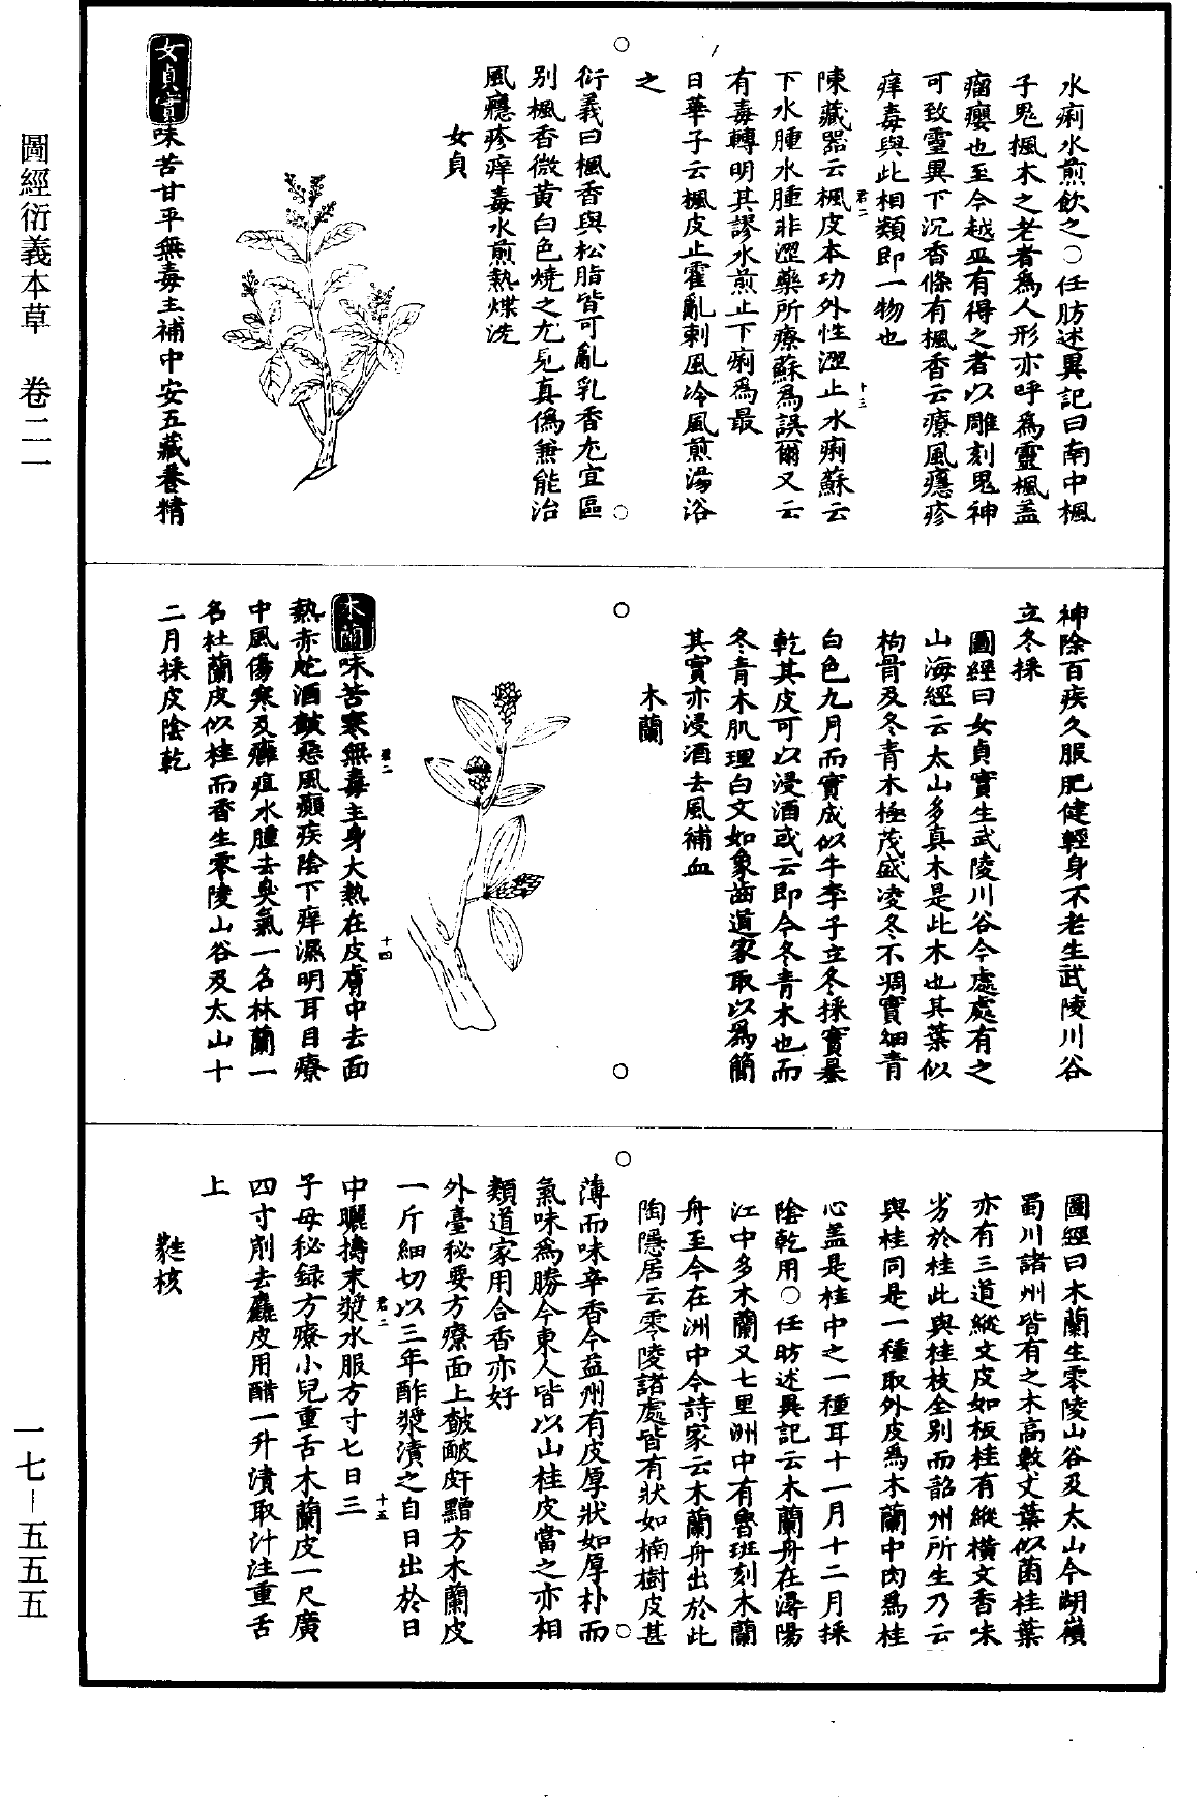 水痢水煎飲之○任昉述異記曰南中楓
子鬼楓木之老者爲人形亦呼爲靈楓盖
瘤癭也至今越巫有得之者以雕刻鬼神
可致靈異下沉香條有楓香云療風癮疹
痒毒與此相類即一物也
陳藏器云楓皮本功外性澀止水痢蘇云
君二
十三
下水腫水腫非澀藥所療蘇爲誤爾又云
有毒轉明其謬水煎止下痢爲最
日華子云楓皮止霍亂刺風冷風煎湯浴
之
衍義曰楓香與松脂皆可亂乳香尤宜區
別楓香微黃白色燒之尤見真僞兼能治
風癮疹痒毒水煎熱煠洗
女貞
女貞實味苦甘平無毒主補中安五藏養精
神除百疾久服肥健輕身不老生武陵川谷
立冬採
圖經曰女貞實生武陵川谷今處處有之
山海經云太山多真木是此木也其葉似
枸骨及冬青木極茂盛凌冬不凋實細青
白色九月而實成似牛李子立冬採實暴
乾其皮可以浸酒或云即今冬青木也而
冬青木肌理白文如象齒道家取以爲簡
其實亦浸酒去風補血
木蘭
木蘭味苦寒無毒主身大熱在皮膚中去面
君二
十四
熱赤皰酒皶惡風癲疾陰下痒濕明耳目療
中風傷寒及癰疽水腫去臭氣一名林蘭一
名杜蘭皮似桂而香生零陵山谷及太山十
二月採皮陰乾
圖經曰木蘭生零陵山谷及太山今湖嶺
蜀川諸州皆有之木高數丈葉似菌桂葉
亦有三道縱文皮如板桂有縱橫文香味
劣於桂此與桂枝全別而韶州所生乃云
與桂同是一種取外皮爲木蘭中肉爲桂
心盖是桂中之一種耳十一月十二月採
陰乾用○任昉述異記云木蘭舟在潯陽
江中多木蘭又七里洲中有魯班刻木蘭
舟至今在洲中今詩家云木蘭舟出於此
陶隱居云零陵諸處皆有狀如楠樹皮甚
薄而味辛香今益州有皮厚狀如厚朴而
氣味爲勝今東人皆以山桂皮當之亦相
類道家用合香亦好
外臺秘要方療面上皶皰皯䵟方木蘭皮
一斤細切以三年酢漿漬之百日出於日
中曬擣末漿水服方寸匕日三
君二
十五
子母秘録方療小兒重舌木蘭皮一尺廣
四寸削去麤皮用醋一升漬取汁注重舌
上
蕤核
圖經衍義本草　卷二一
一七—五五五